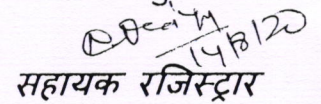 14/8/20
सहायक रजिस्ट्रार